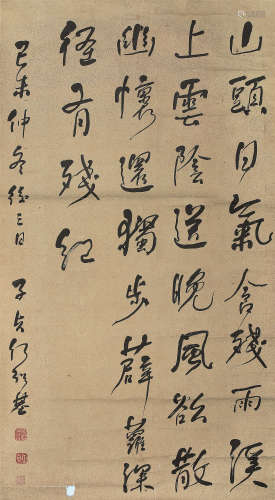 山頭日氣含殘雨溪
上雲陰送晚風欲散
幽懷還獨步薜蘿深
徑有殘紅
己未仲冬後三日 子貞何紹基